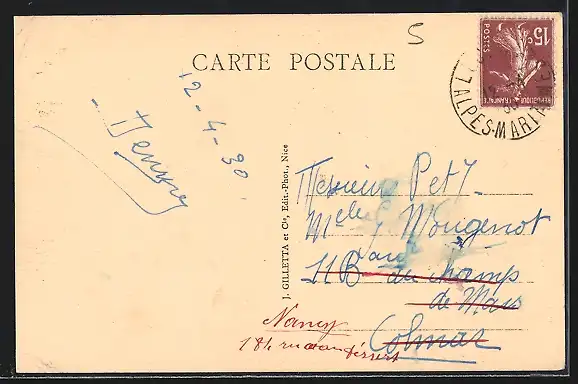 5
CARTE POSTALE
POSTES
15c
REPUBLIQUE FRANÇAISE
ALPES-MARITMES
12-4-30
J. GILLETTA et Cie, Edit.-Phot., Nice
Messieur Pet J.
Melle J Mougenot
11 Bould du champ
de Mars
Colmar
Nancy